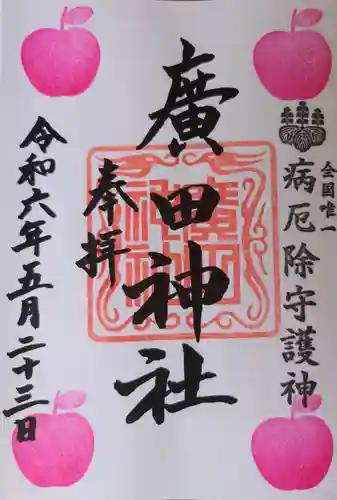 全国唯一
病厄除守護神
奉拝
廣田神社
令和六年五月二十三日
廣田神社